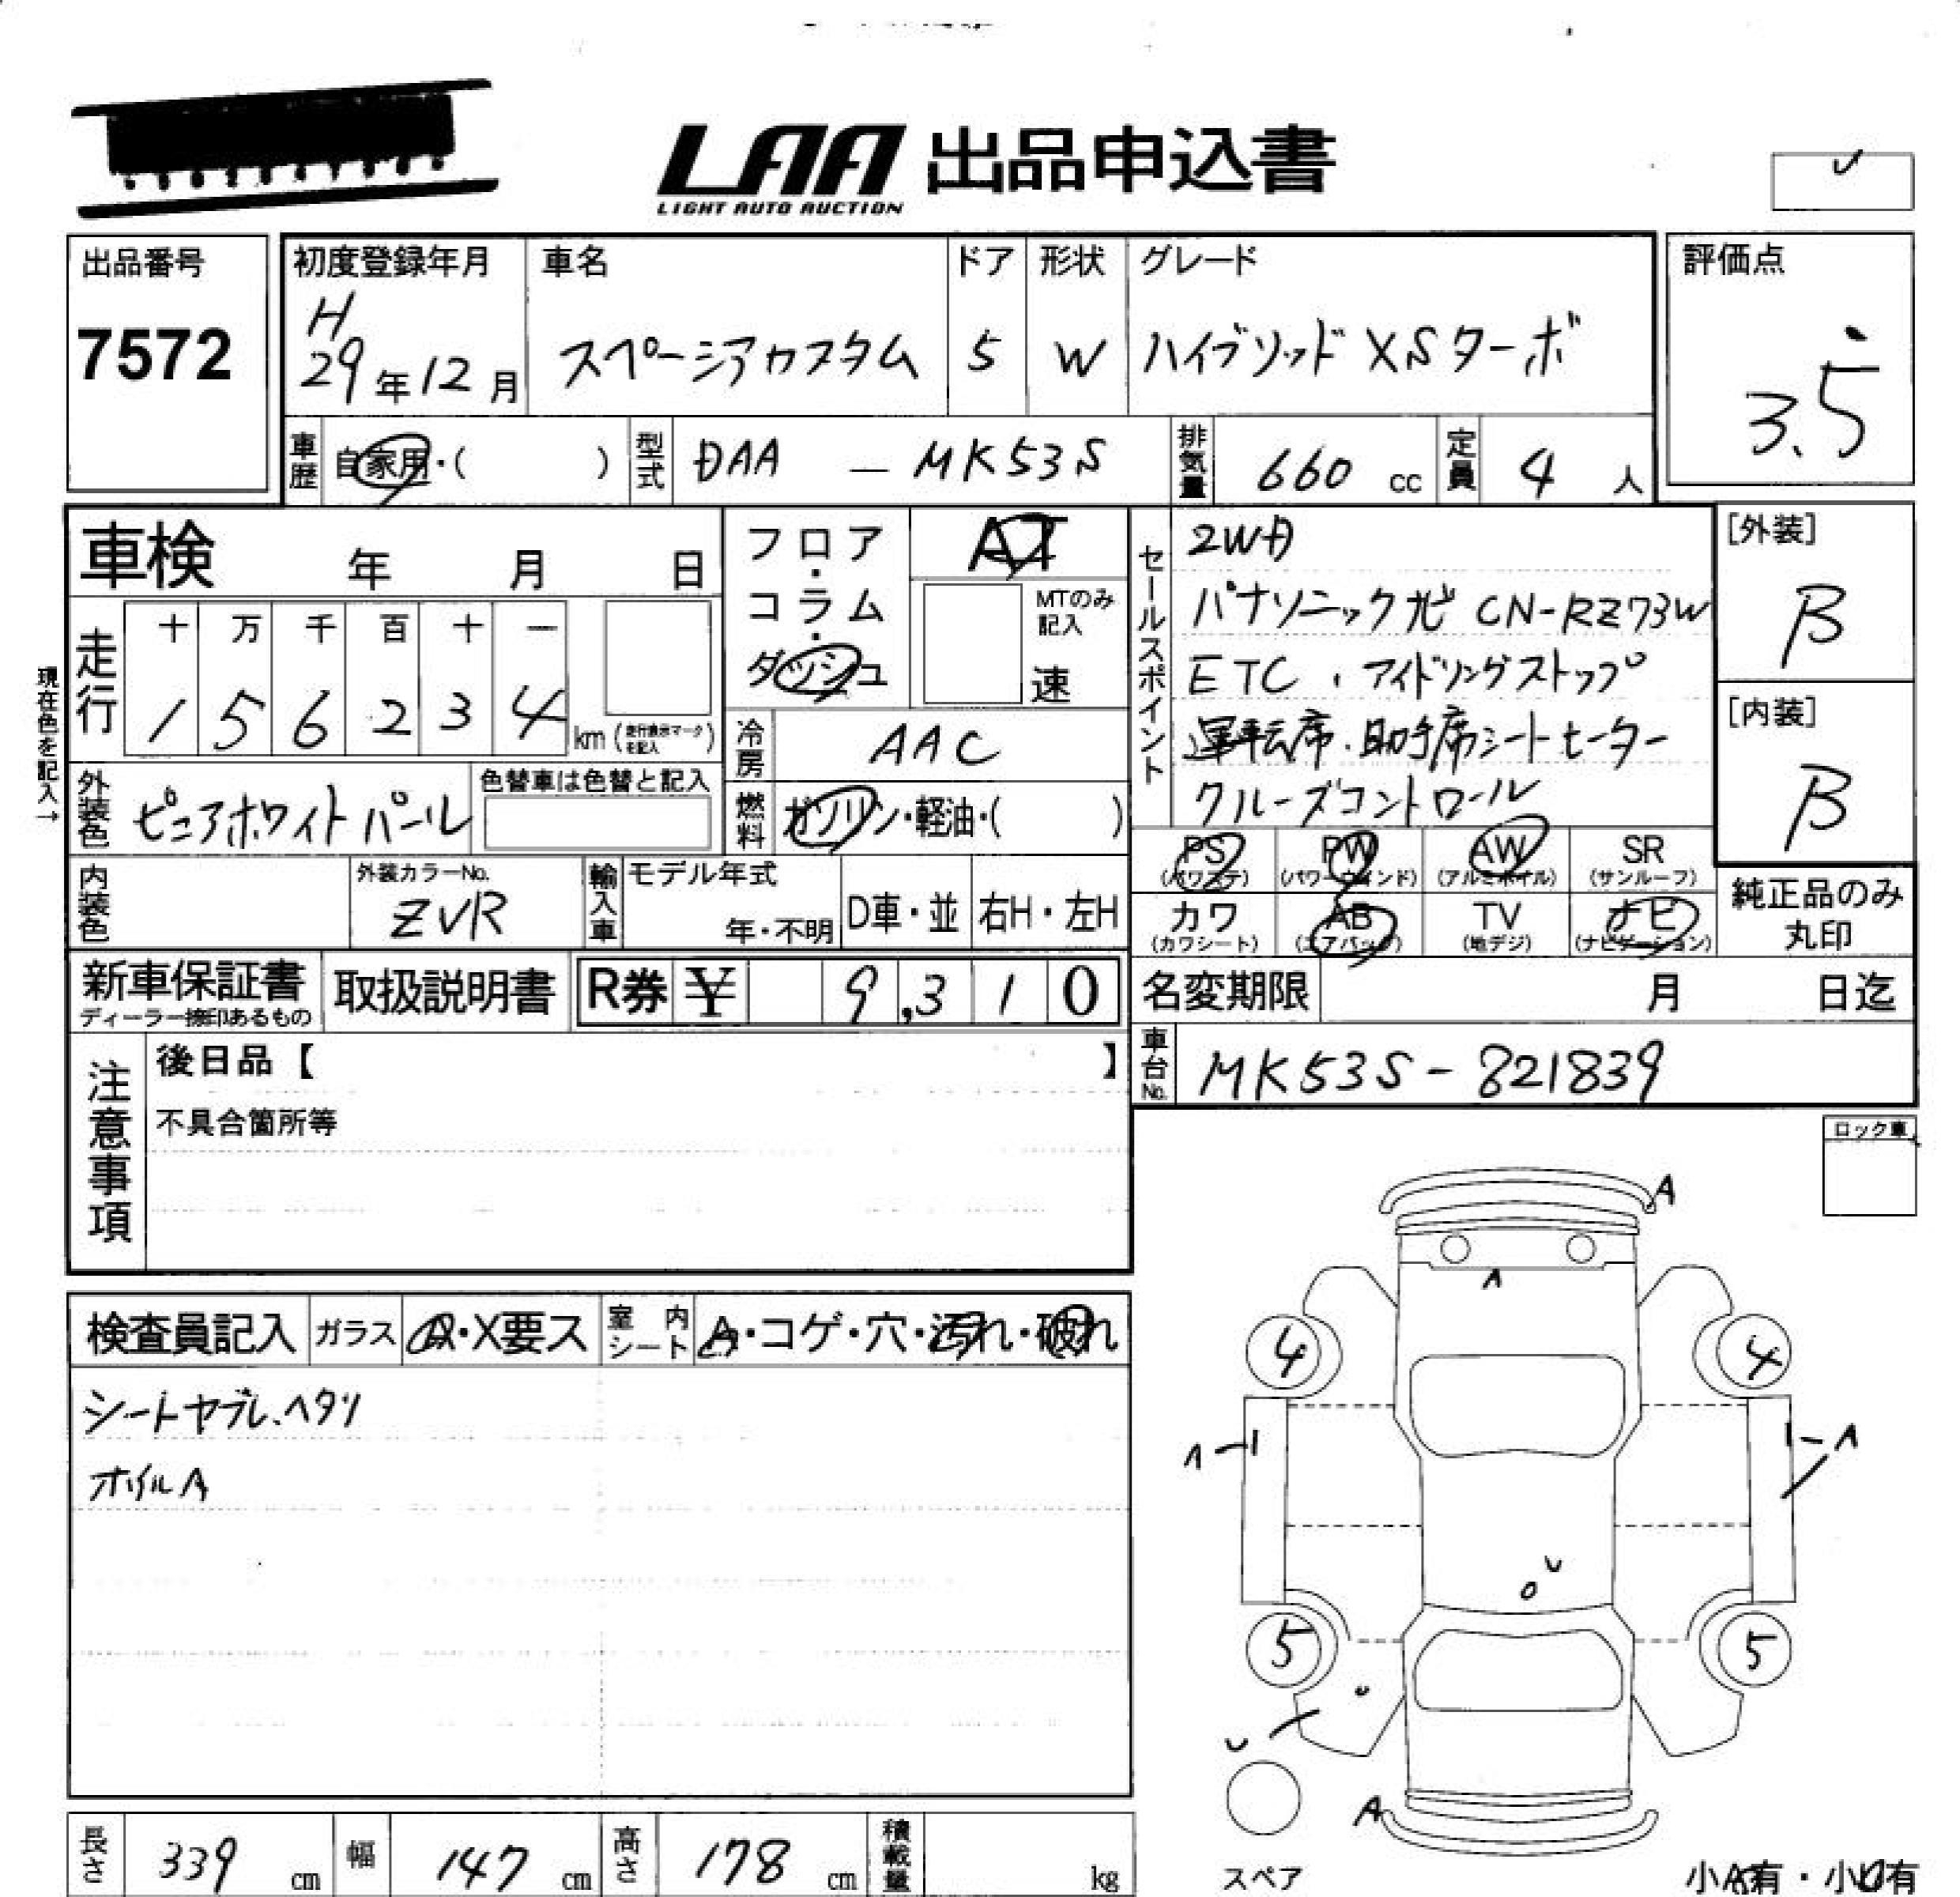 LAA 出品申込書
LIGHT AUTO AUCTION
出品番号
7572
初度登録年月
H
29年12月
車名
スペーシアカスタム
ドア
5
形状
W
グレード
ハイブリッド XSターボ
評価点
3.5
車歴
自家用・( )
型式
DAA - MK53S
排気量
660 cc
定員
4 人
車検 年 月 日
フロア・コラム・ダッシュ
AT
MTのみ
記入
速
走行
十 万 千 百 十 一
1 5 6 2 3 4 km (走行表示マークを記入)
現在色を記入→
冷房
AAC
外装色
ピュアホワイトパール
色替車は色替と記入
燃料
ガソリン・軽油・( )
内装色
外装カラーNo.
ZVR
輸入車
モデル年式
年・不明
D車・並
右H・左H
セールスポイント
2WD
パナソニックナビ CN-RZ73W
ETC.アイドリングストップ
運転席.助手席シートヒーター
クルーズコントロール
[外装]
B
[内装]
B
PS
(パワステ)
PW
(パワーウィンド)
AW
(アルミホイル)
SR
(サンルーフ)
カワ
(カワシート)
AB
(エアバッグ)
TV
(地デジ)
ナビ
(ナビゲーション)
純正品のみ
丸印
新車保証書
ディーラー捺印あるもの
取扱説明書
R券 ¥ 9,310
名変期限 月 日迄
車台No.
MK53S-821839
注意事項
後日品【 】
不具合箇所等
ロック車
検査員記入
ガラス
A・X要ス
室内シート
A・コゲ・穴・汚れ・破れ
シートヤブレ.ヘタリ
ホイルA
A
A
4
4
A
A
U
U
5
5
U
U
A
スペア
小A有・小U有
長さ
339 cm
幅
147 cm
高さ
178 cm
積載量
kg